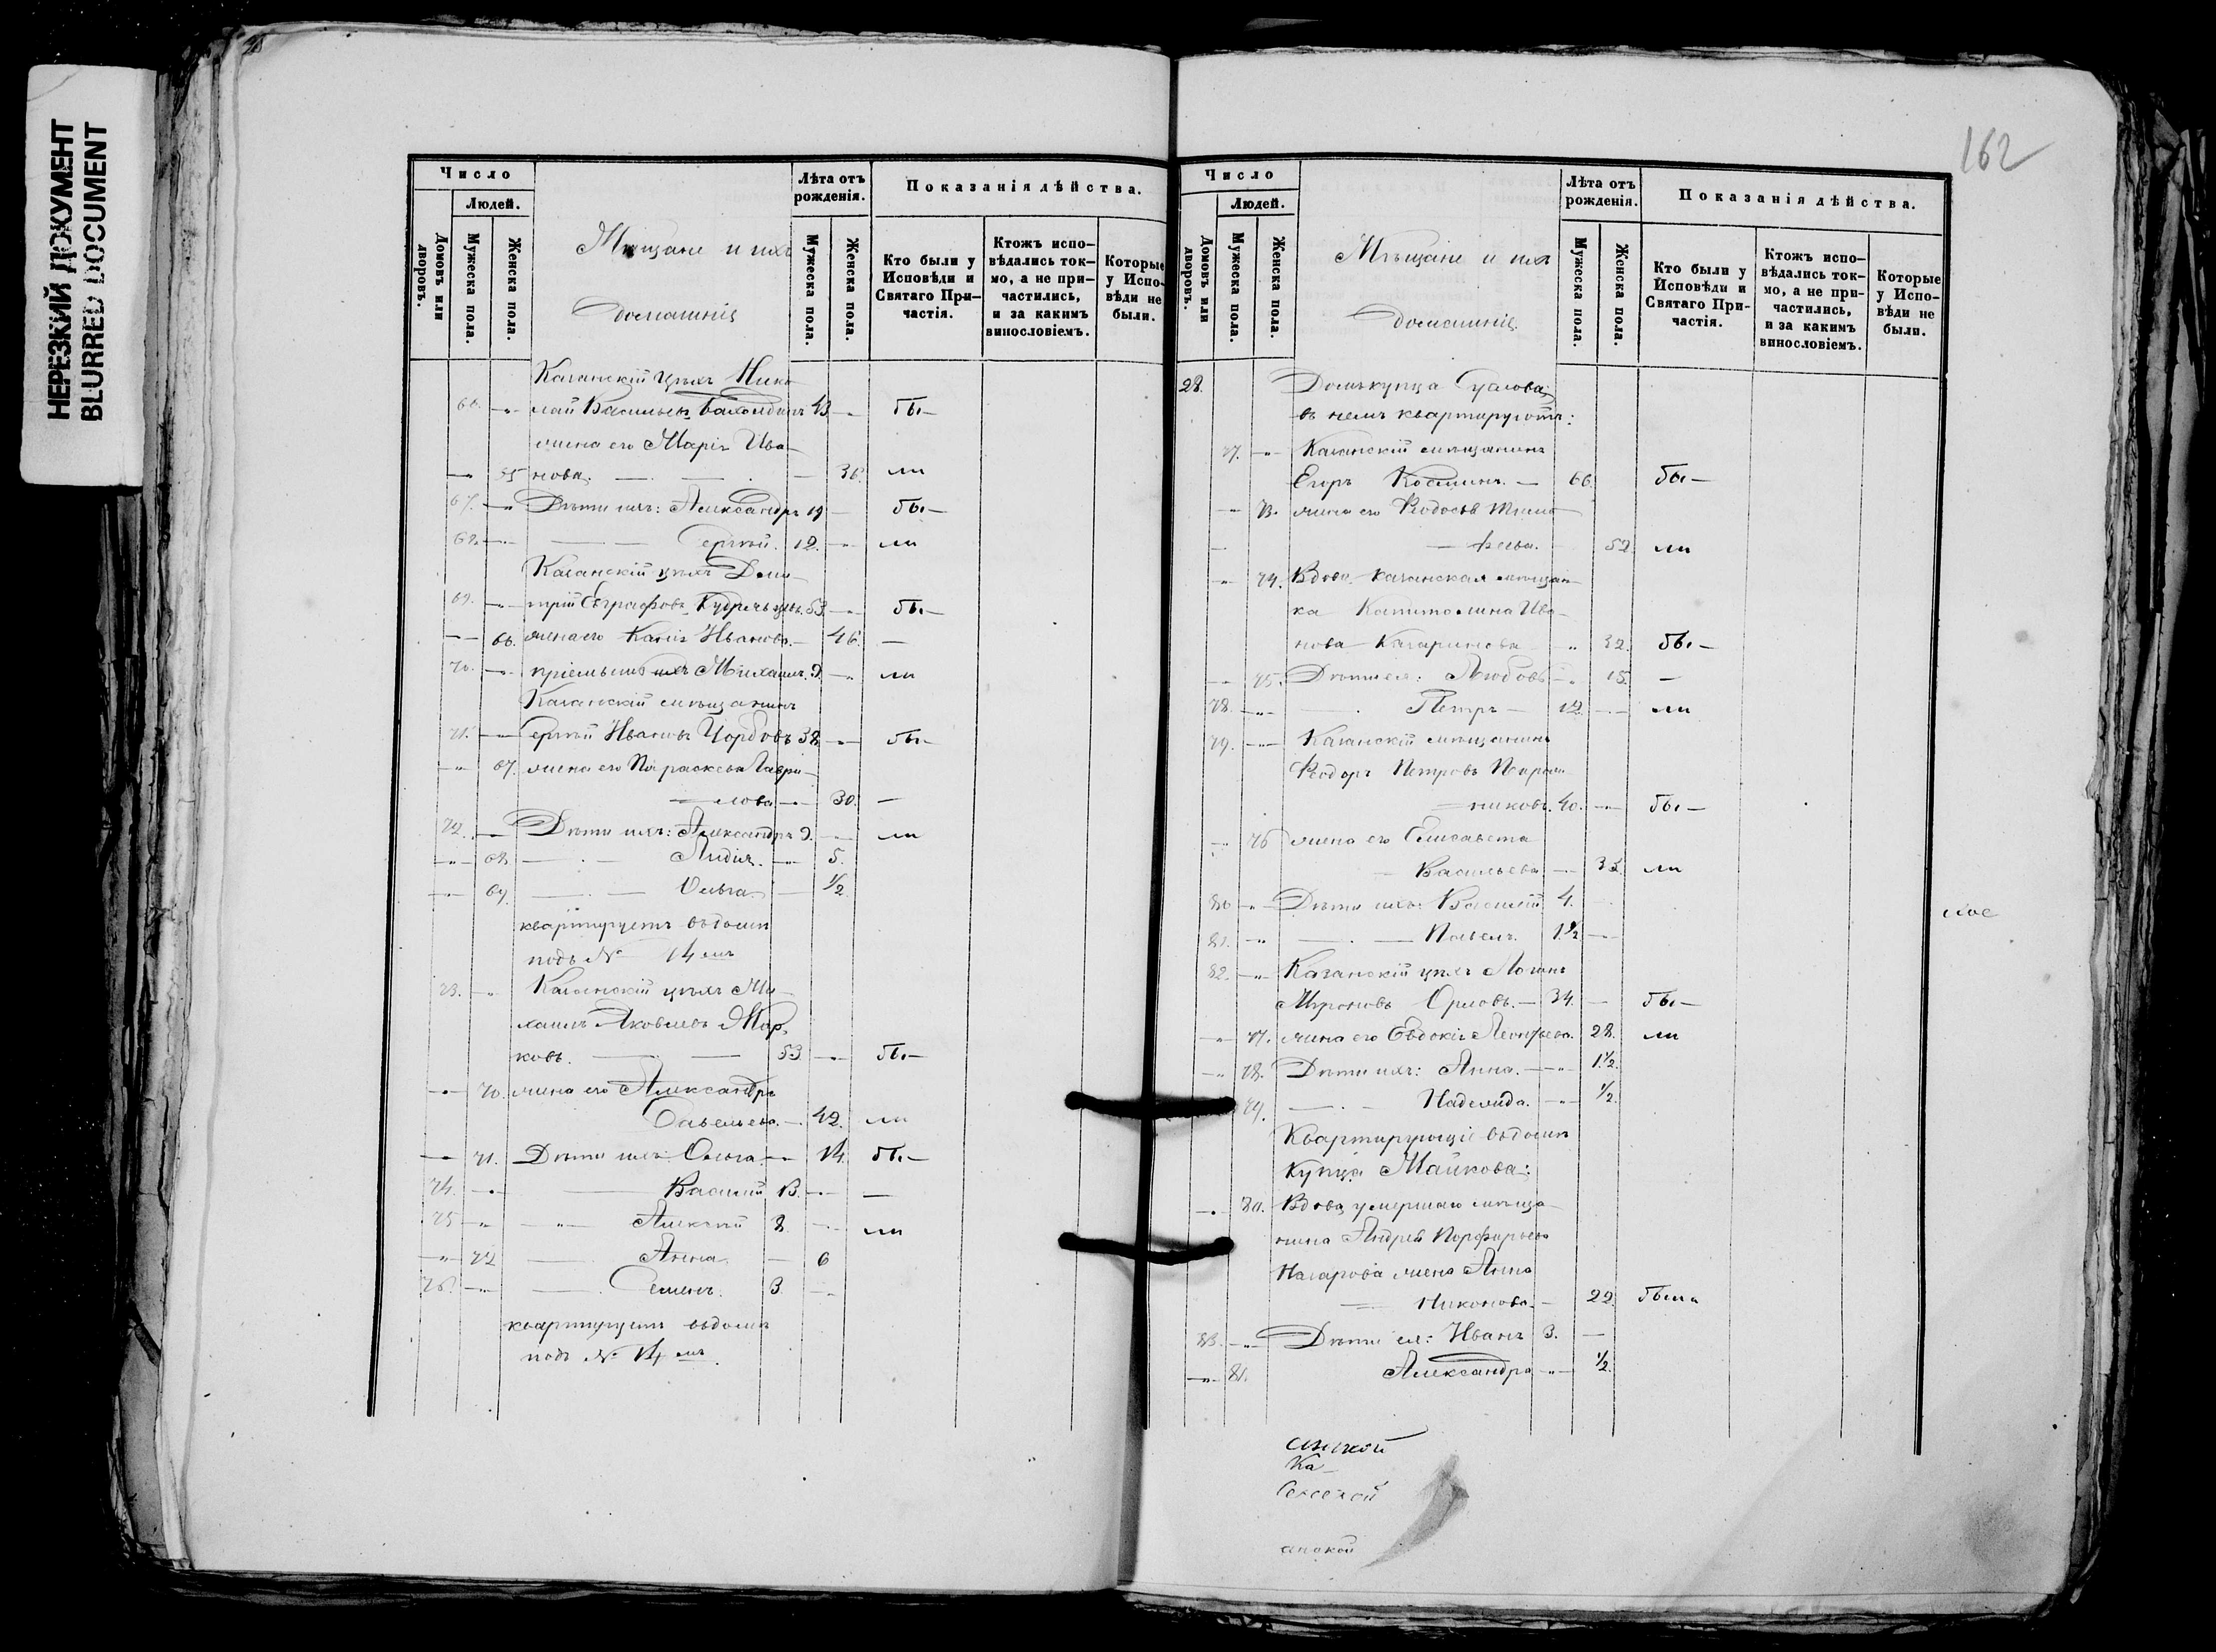 НЕРЕЗКИЙ ДОКУМЕНТ
BLURRED DOCUMENT
Число
Людей.
Домовъ или дворовъ.
Мужеска пола.
Женска пола.
Мѣщане и ихъ
домашніе
Лѣта отъ рожденія.
Мужеска пола.
Женска пола.
Показанія дѣйства.
Кто были у Исповѣди и Святаго Причастія.
Ктожъ исповѣдались токмо, а не причастились, и за какимъ винословіемъ.
Которые у Исповѣди не были.
Казанскій цехъ Нико-
66. лай Васильев 43 бы-
жена его Марія Ива-
65 нова. 36. ли
67. Дѣти ихъ: Александръ 19 бы-
68. Сергѣй. 12. ли
Казанскій цехъ Дми-
69. трій Евграфовъ 53 бы-
66. жена его Иванова 46. —
70. пріемышъ ихъ Михаилъ. 9. ли
Казанскій мѣщанинъ
71. Сергѣй Ивановъ 38 бы-
67. жена его Параскева Гаври-
лова 30. —
72. Дѣти ихъ: Александръ 9. ли
68 Лидія. 5.
69. Ольга 1/2
квартируетъ въ домѣ
подъ № 14мъ
73. Казанскій цехъ Ми-
хаилъ Яковлевъ Мар-
ковъ. 53 бы-
70. жена его Александра
Савельева. 42. ли
71. Дѣти ихъ: Ольга 14. бы-
74. Василій 13. —
75 Алексѣй 8. ли
72 Анна 6
76. Семенъ. 3.
квартируетъ въ домѣ
подъ № 14мъ.
162
Число
Людей.
Домовъ или дворовъ.
Мужеска пола.
Женска пола.
Мѣщане и ихъ
домашніе.
Лѣта отъ рожденія.
Мужеска пола.
Женска пола.
Показанія дѣйства.
Кто были у Исповѣди и Святаго Причастія.
Ктожъ исповѣдались токмо, а не причастились, и за какимъ винословіемъ.
Которые у Исповѣди не были.
28. Домъ купца
въ немъ квартируютъ:
77. Казанскій мѣщанинъ
Егоръ Косминъ. 66. бы-
73. жена его Ѳедосья Тимо-
феева. 52. ли
74. Вдова казанская мѣщан-
ка Капитолина Ива-
нова 32. бы-
75. Дѣти ея: Любовь 15. —
78. Петръ 12. ли
79. Казанскій мѣщанинъ
Ѳеодоръ Петровъ
никовъ. 40. бы-
76 жена его Елисавета
Васильева 33. ли
80 Дѣти ихъ: Василій 4.
81. Павелъ. 1 1/2
82. Казанскій цехъ Логинъ
Мироновъ Орловъ. 34. бы-
77. жена его Евдокія Леонтьева. 28. ли
78. Дѣти ихъ: Анна. 1 1/2.
79. Надежда. 1/2.
Квартирующіе въ домѣ
купца Майкова:
80. Вдова умершаго мѣща-
нина Андрея Порфирьева
Назарова жена Анна
Никонова. 22. была
83. Дѣти ея: Иванъ 3. —
81. Александра 1/2.
ской
Ка-